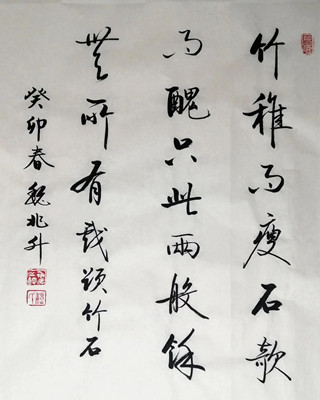 竹稚而瘦石欹
而醜只此兩般餘
無所有戴題竹石
癸卯春魏兆升